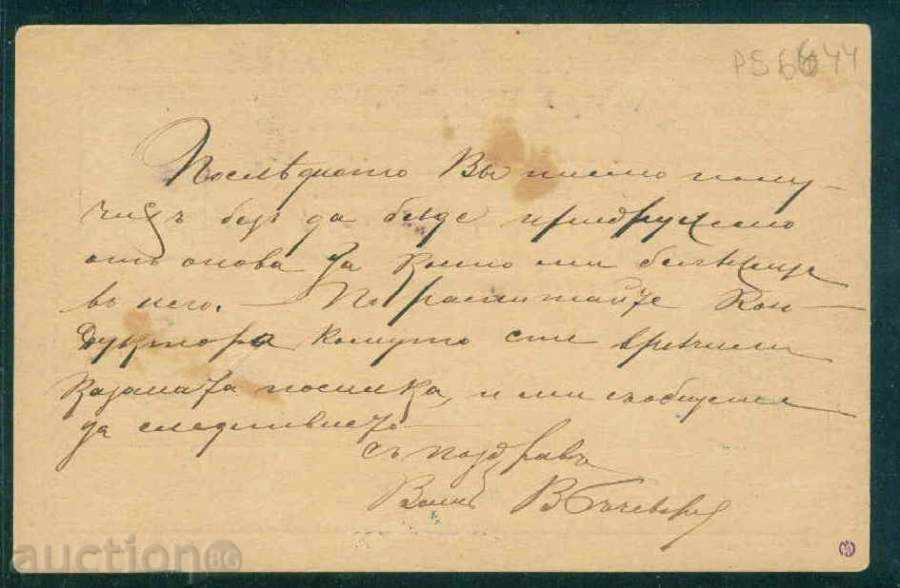 PS6644
Послѣдното Ви писмо полу-
чихъ без да бѫде придружено
отъ онова за което ми бележите
въ него. — Поразпитайте Кон-
дуктора комуто сте врѫчили
казаната посилка, и ми съобщете
да слѣдствието
съ поздравъ
Вашъ В
auction BG